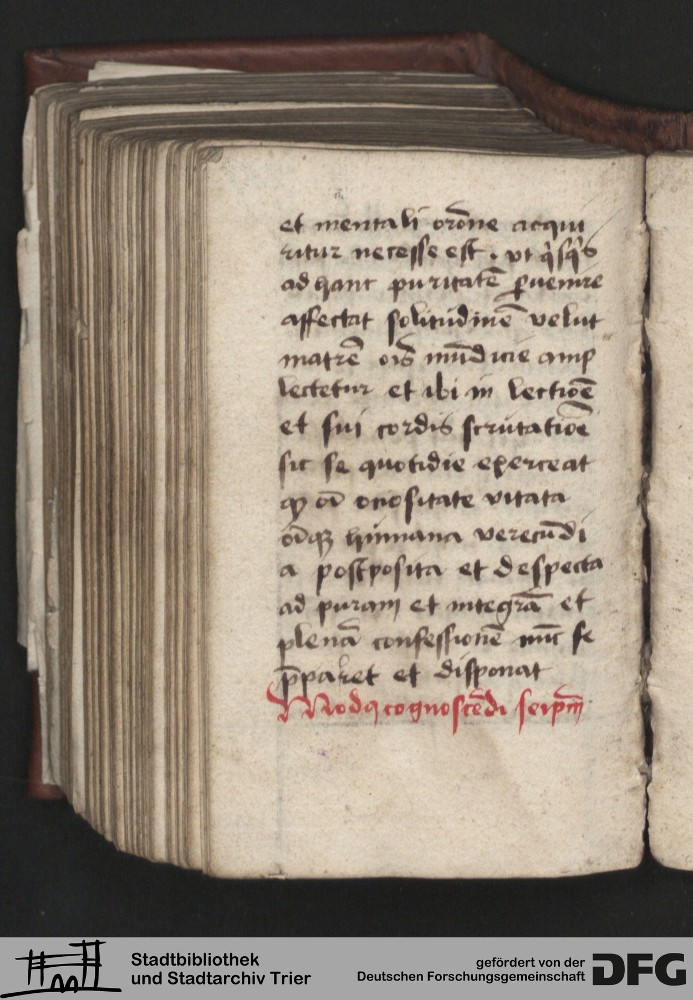 et mentali orōne acqui
ritur necesse est. ut q̇sq̇s
ad hanc puritatē ꝑuenire
affectat solitudinē velut
matrē oīs mūdicie amp
lectetur et ibi in lectiōē
et sui cordis scrutatiōē
sic se quotidie exerceat
ꝙ oī ociositate vitata
oīqꝫ humana verecūdi
a postposita et despecta
ad puram et integrā et
plenā confessionē nūc se
p̄paret et disponat
Modꝰ cognoscēdi seip̄m
Stadtbibliothek
und Stadtarchiv Trier
gefördert von der
Deutschen Forschungsgemeinschaft
DFG